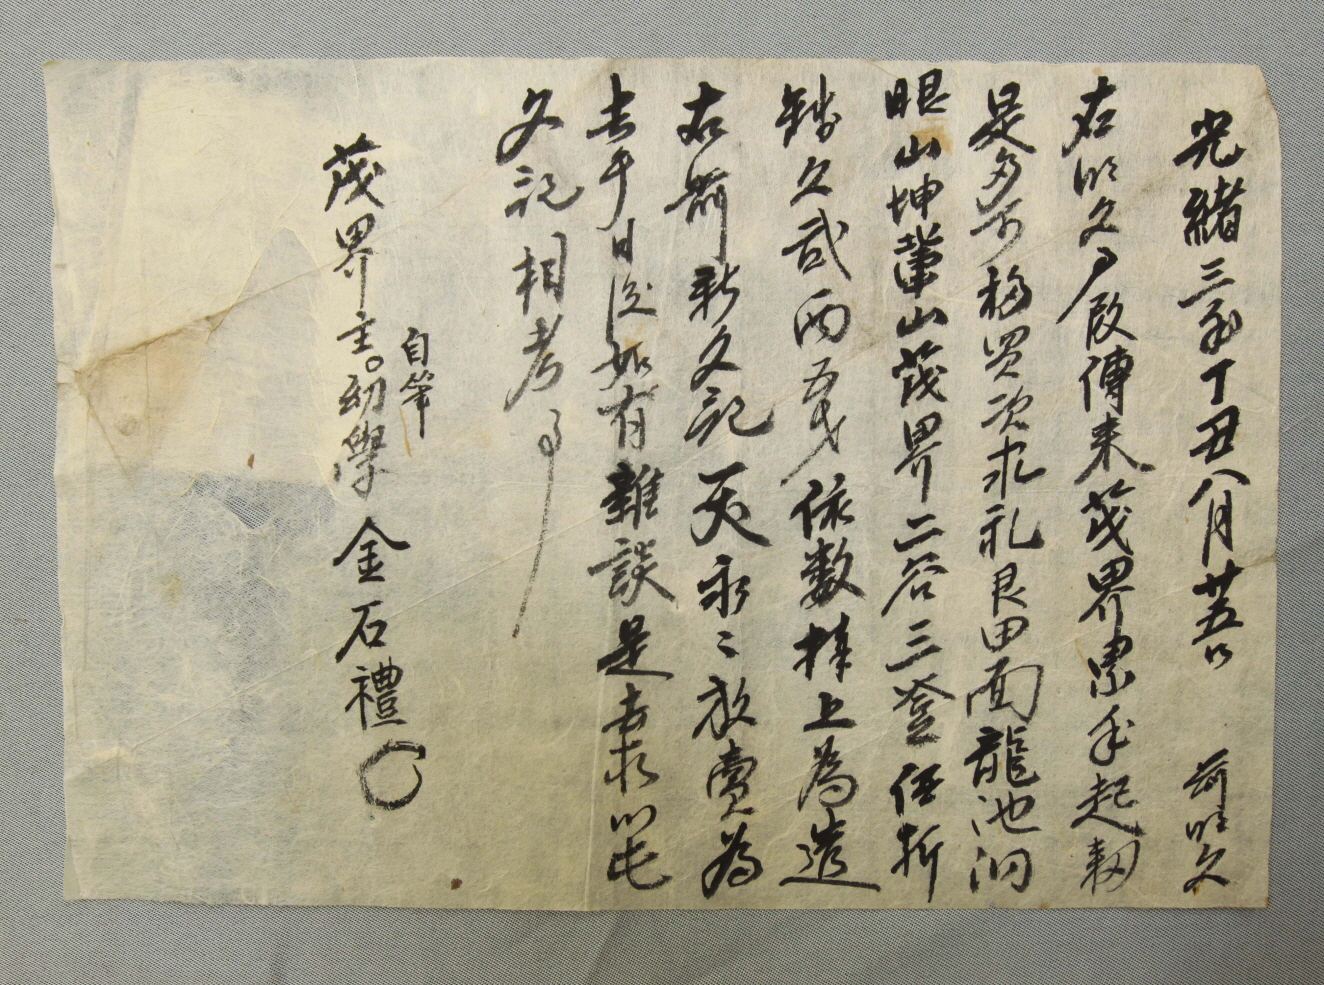 光緒三年丁丑八月廿五日 前明文
右明文事段傳来茂界累年起耕
是多可移買次求礼良田面龍池洞
眼山坤輦山茂界二谷三登伍折
錢文貳两五戔依数捧上為遣
右前新文記天永〻放賣為
去乎日後如有雜談是去等以此
文記相考事
茂界主 幼學 金石禮
自筆